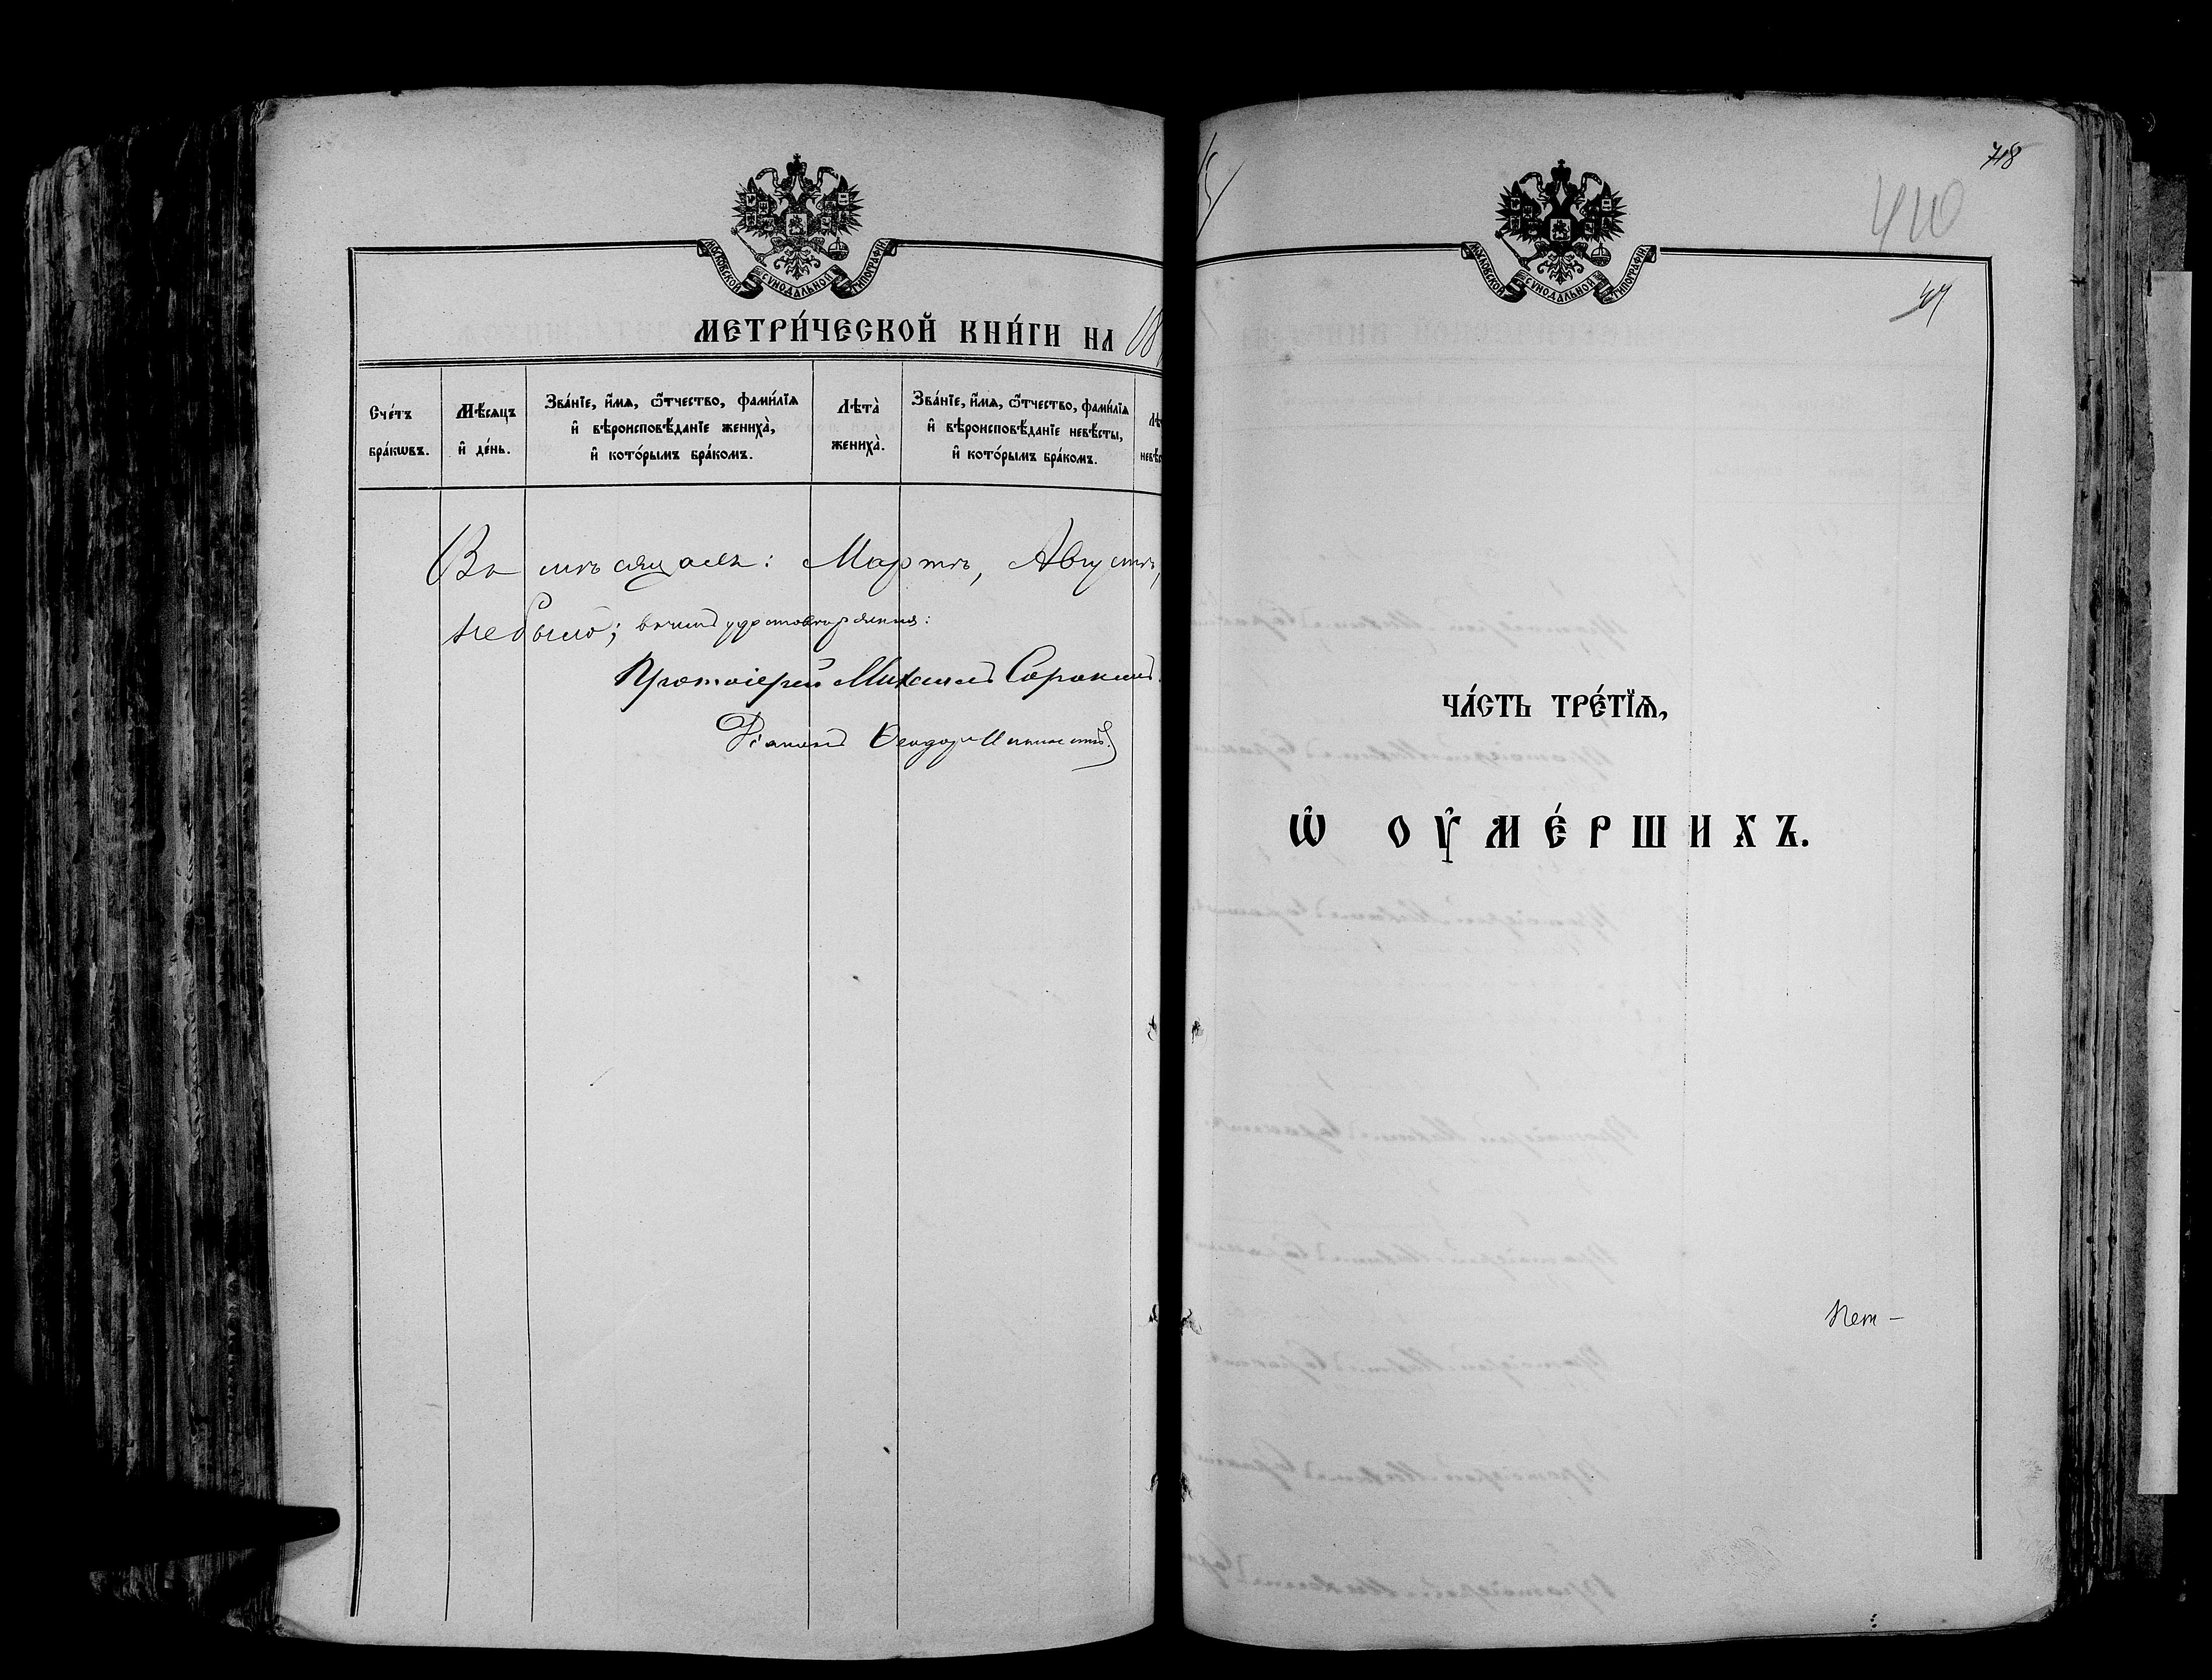 МОСКОВСКОЙ СѴНОДАЛЬНОЙ ТИПОГРАФІИ
МЕТРИ́ЧЕСКОЙ КНИ́ГИ НА 18
Сче́тъ бра́кѡвъ.
Мѣ́сяцъ и҆ де́нь.
Зва́нїе, и҆́мѧ, ѻ҆́тчество, фами́лїѧ
и҆ вѣроисповѣ́данїе жениха̀,
и҆ кото́рымъ бра́комъ.
Лѣта̀ жениха̀.
Зва́нїе, и҆́мѧ, ѻ҆́тчество, фами́лїѧ
и҆ вѣроисповѣ́данїе невѣ́сты,
и҆ кото́рымъ бра́комъ.
Въ мѣсяцахъ: Мартѣ, Августѣ,
не было; въ чемъ удостовѣряемъ:
Протоіерей Михаилъ Сорокинъ.
Діаконъ Ѳеодоръ
718
410
МОСКОВСКОЙ СѴНОДАЛЬНОЙ ТИПОГРАФІИ
ЧА́СТЬ ТРЕ́ТЇѦ,
Ѡ҆ ОУ҆МЕ́РШИХЪ.
Нет –